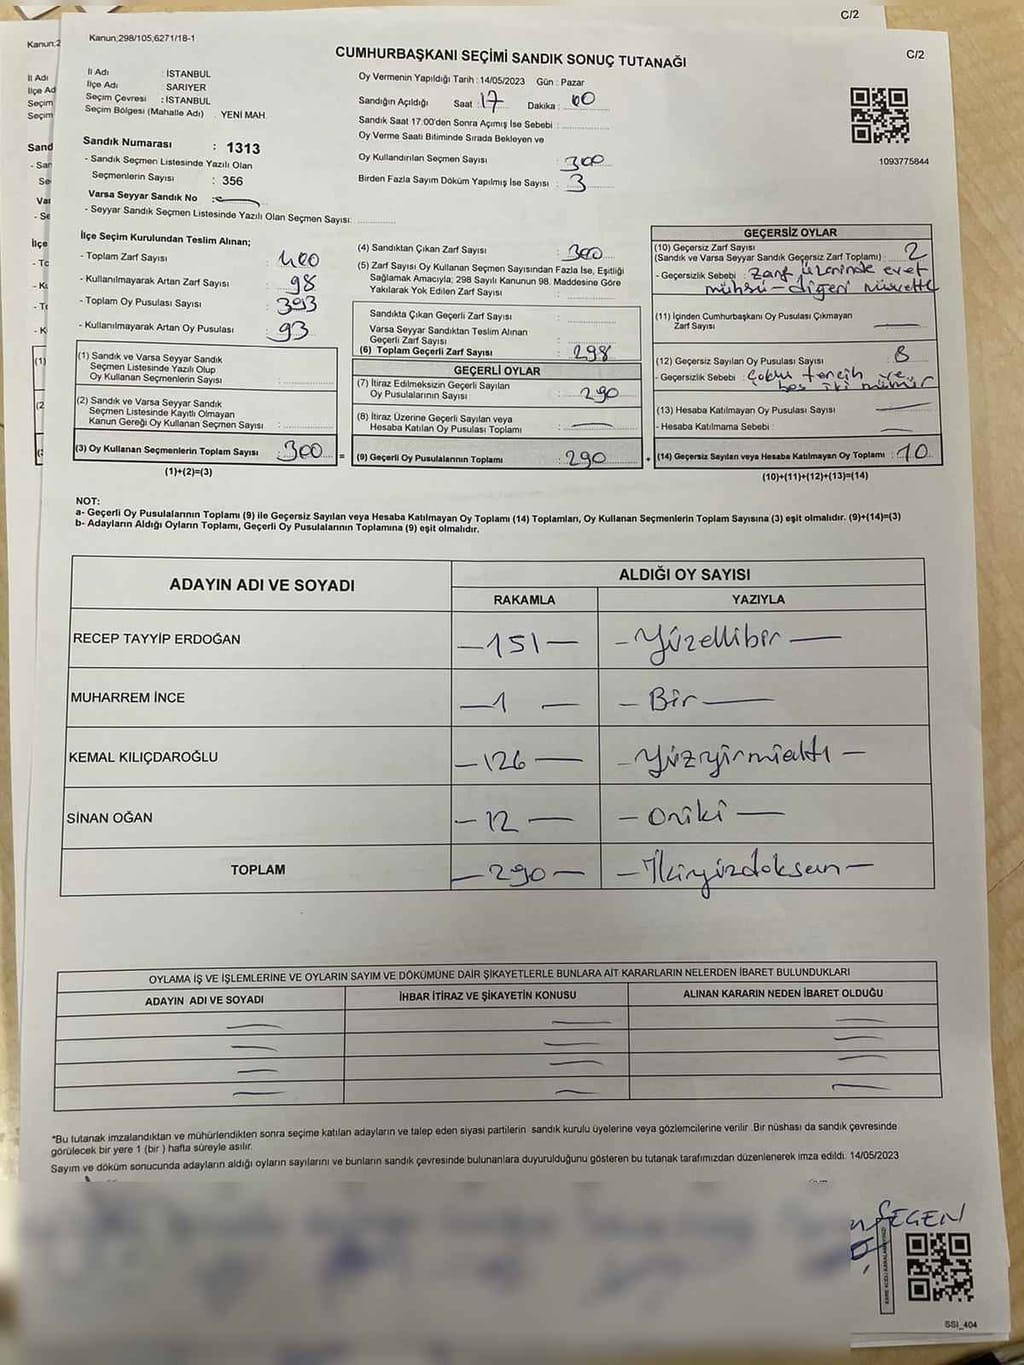 C/2
Kanun;298/105;6271/18-1
C/2
CUMHURBAŞKANI SEÇİMİ SANDIK SONUÇ TUTANAĞI
İl Adı : İSTANBUL
İlçe Adı : SARIYER
Seçim Çevresi : İSTANBUL
Seçim Bölgesi (Mahalle Adı) : YENİ MAH.
Sandık Numarası : 1313
- Sandık Seçmen Listesinde Yazılı Olan
Seçmenlerin Sayısı : 356
Varsa Seyyar Sandık No :
- Seyyar Sandık Seçmen Listesinde Yazılı Olan Seçmen Sayısı:
Oy Vermenin Yapıldığı Tarih : 14/05/2023 Gün : Pazar
Sandığın Açıldığı Saat : 17 Dakika : 00
Sandık Saat 17:00'den Sonra Açımış İse Sebebi :
Oy Verme Saati Bitiminde Sırada Bekleyen ve
Oy Kullandırılan Seçmen Sayısı : 300
Birden Fazla Sayım Döküm Yapılmış İse Sayısı : 3
1093775844
İlçe Seçim Kurulundan Teslim Alınan;
- Toplam Zarf Sayısı : 400
- Kullanılmayarak Artan Zarf Sayısı : 98
- Toplam Oy Pusulası Sayısı : 393
- Kullanılmayarak Artan Oy Pusulası : 93
(1) Sandık ve Varsa Seyyar Sandık
Seçmen Listesinde Yazılı Olup
Oy Kullanan Seçmenlerin Sayısı :
(2) Sandık ve Varsa Seyyar Sandık
Seçmen Listesinde Kayıtlı Olmayan
Kanun Gereği Oy Kullanan Seçmen Sayısı :
(3) Oy Kullanan Seçmenlerin Toplam Sayısı : 300
(1)+(2)=(3)
(4) Sandıktan Çıkan Zarf Sayısı : 300
(5) Zarf Sayısı Oy Kullanan Seçmen Sayısından Fazla İse, Eşitliği
Sağlamak Amacıyla; 298 Sayılı Kanunun 98. Maddesine Göre
Yakılarak Yok Edilen Zarf Sayısı :
Sandıkta Çıkan Geçerli Zarf Sayısı :
Varsa Seyyar Sandıktan Teslim Alınan
Geçerli Zarf Sayısı :
(6) Toplam Geçerli Zarf Sayısı : 298
GEÇERLİ OYLAR
(7) İtiraz Edilmeksizin Geçerli Sayılan
Oy Pusulalarının Sayısı : 290
(8) İtiraz Üzerine Geçerli Sayılan veya
Hesaba Katılan Oy Pusulası Toplamı :
= (9) Geçerli Oy Pusulalarının Toplamı : 290
GEÇERSİZ OYLAR
(10) Geçersiz Zarf Sayısı : 2
(Sandık ve Varsa Seyyar Sandık Geçersiz Zarf Toplamı)
- Geçersizlik Sebebi : Zarf üzerinde evet
mührü - diğeri
(11) İçinden Cumhurbaşkanı Oy Pusulası Çıkmayan
Zarf Sayısı :
(12) Geçersiz Sayılan Oy Pusulası Sayısı : 8
- Geçersizlik Sebebi : Çoklu tercih ve
boş iki mühür
(13) Hesaba Katılmayan Oy Pusulası Sayısı
- Hesaba Katılmama Sebebi :
+ (14) Geçersiz Sayılan veya Hesaba Katılmayan Oy Toplamı : 10
(10)+(11)+(12)+(13)=(14)
NOT:
a- Geçerli Oy Pusulalarının Toplamı (9) ile Geçersiz Sayılan veya Hesaba Katılmayan Oy Toplamı (14) Toplamları, Oy Kullanan Seçmenlerin Toplam Sayısına (3) eşit olmalıdır. (9)+(14)=(3)
b- Adayların Aldığı Oyların Toplamı, Geçerli Oy Pusulalarının Toplamına (9) eşit olmalıdır.
ADAYIN ADI VE SOYADI ALDIĞI OY SAYISI
RAKAMLA YAZIYLA
RECEP TAYYİP ERDOĞAN - 151 - - Yüzellibir -
MUHARREM İNCE - 1 - - Bir -
KEMAL KILIÇDAROĞLU - 126 - - Yüzyirmialtı -
SİNAN OĞAN - 12 - - Oniki -
TOPLAM - 290 - - İkiyüzdoksan -
OYLAMA İŞ VE İŞLEMLERİNE VE OYLARIN SAYIM VE DÖKÜMÜNE DAİR ŞİKAYETLERLE BUNLARA AİT KARARLARIN NELERDEN İBARET BULUNDUKLARI
ADAYIN ADI VE SOYADI İHBAR İTİRAZ VE ŞİKAYETİN KONUSU ALINAN KARARIN NEDEN İBARET OLDUĞU
*Bu tutanak imzalandıktan ve mühürlendikten sonra seçime katılan adayların ve talep eden siyasi partilerin sandık kurulu üyelerine veya gözlemcilerine verilir. Bir nüshası da sandık çevresinde
görülecek bir yere 1 (bir ) hafta süreyle asılır.
Sayım ve döküm sonucunda adayların aldığı oyların sayılarını ve bunların sandık çevresinde bulunanlara duyurulduğunu gösteren bu tutanak tarafımızdan düzenlenerek imza edildi. 14/05/2023
SSİ_404